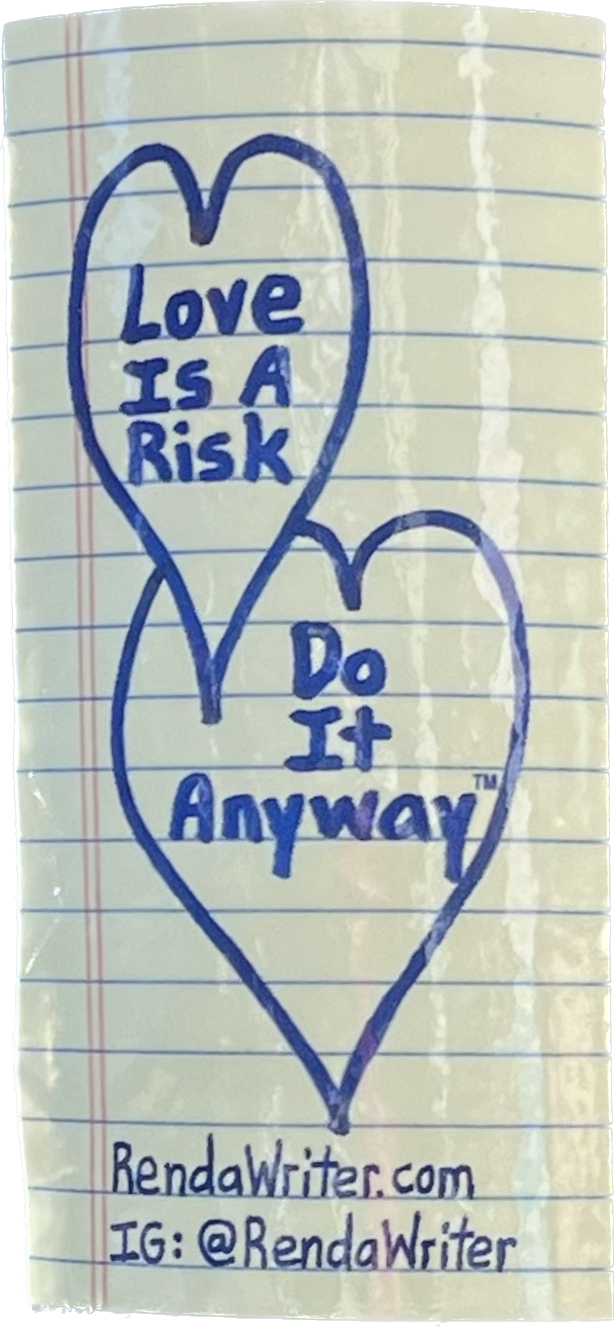 Love
Is A
Risk
Do
It
Anyway™
RendaWriter.com
IG: @RendaWriter